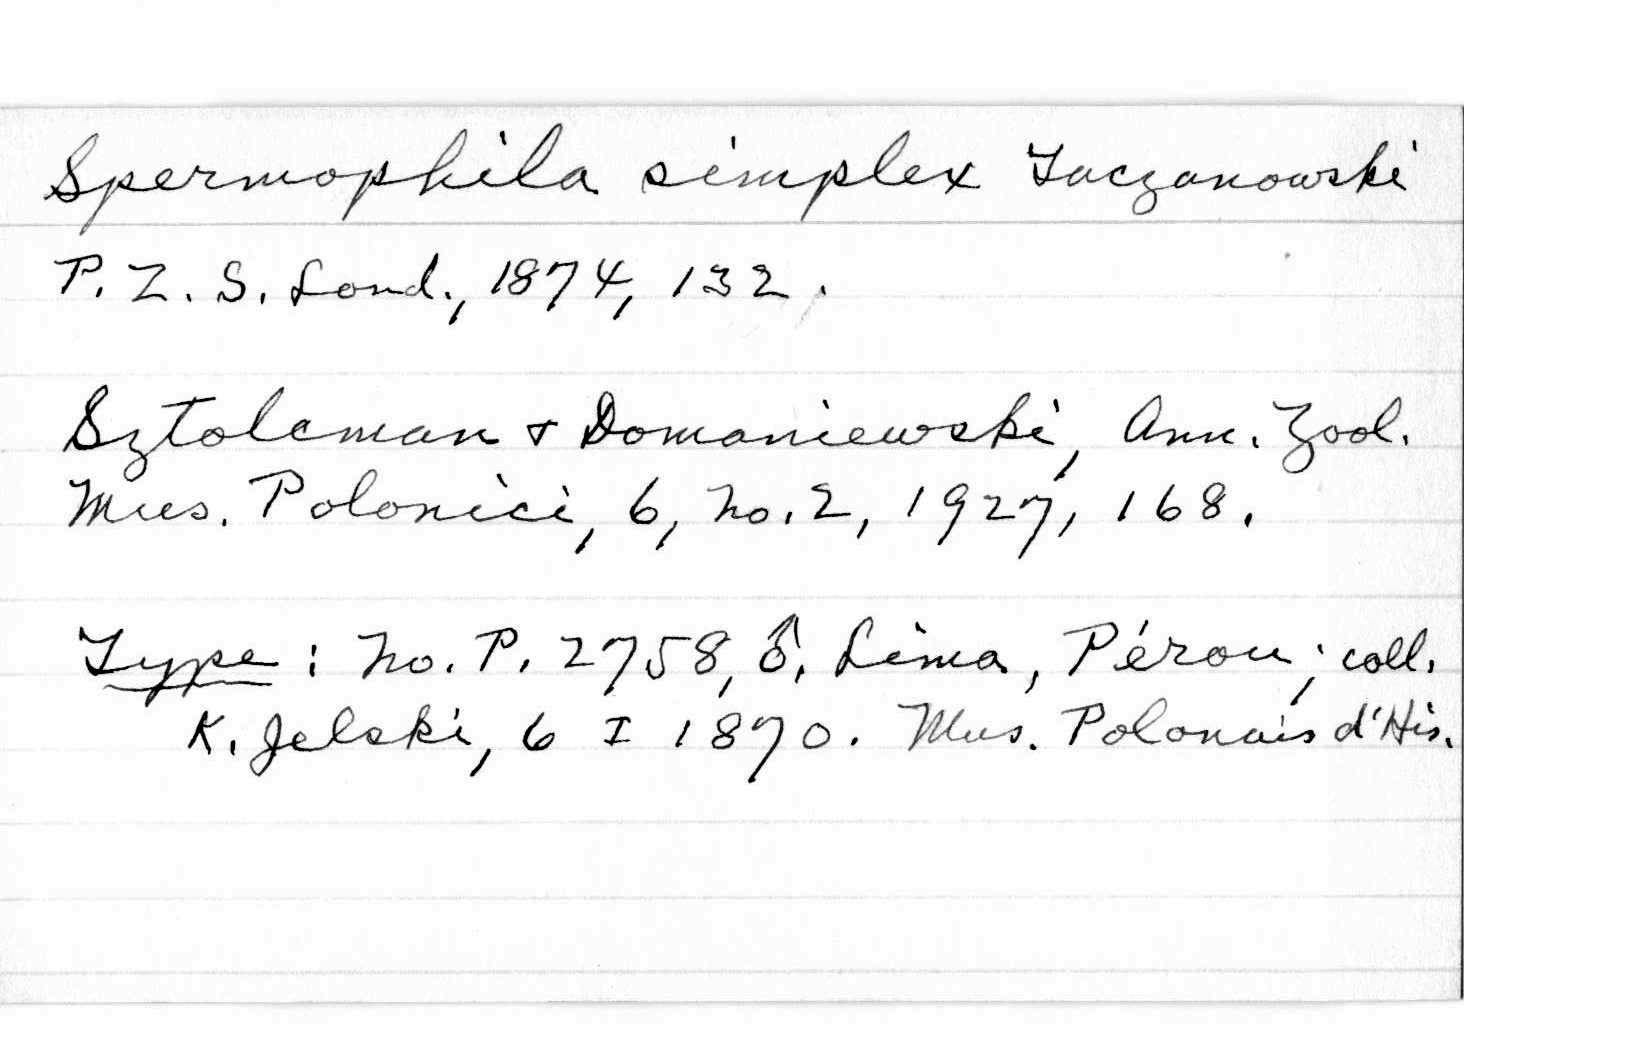 Spermophila simplex Taczanowski
P. Z. S. Lond., 1874, 132.
Sztolcman & Domaniewski, Ann. Zool.
Mus. Polonici, 6, No. 2, 1927, 168.
Type: No. P. 2758, ♂. Lima, Pérou; coll.
K. Jelski, 6 I 1870. Mus. Polonais d'His.